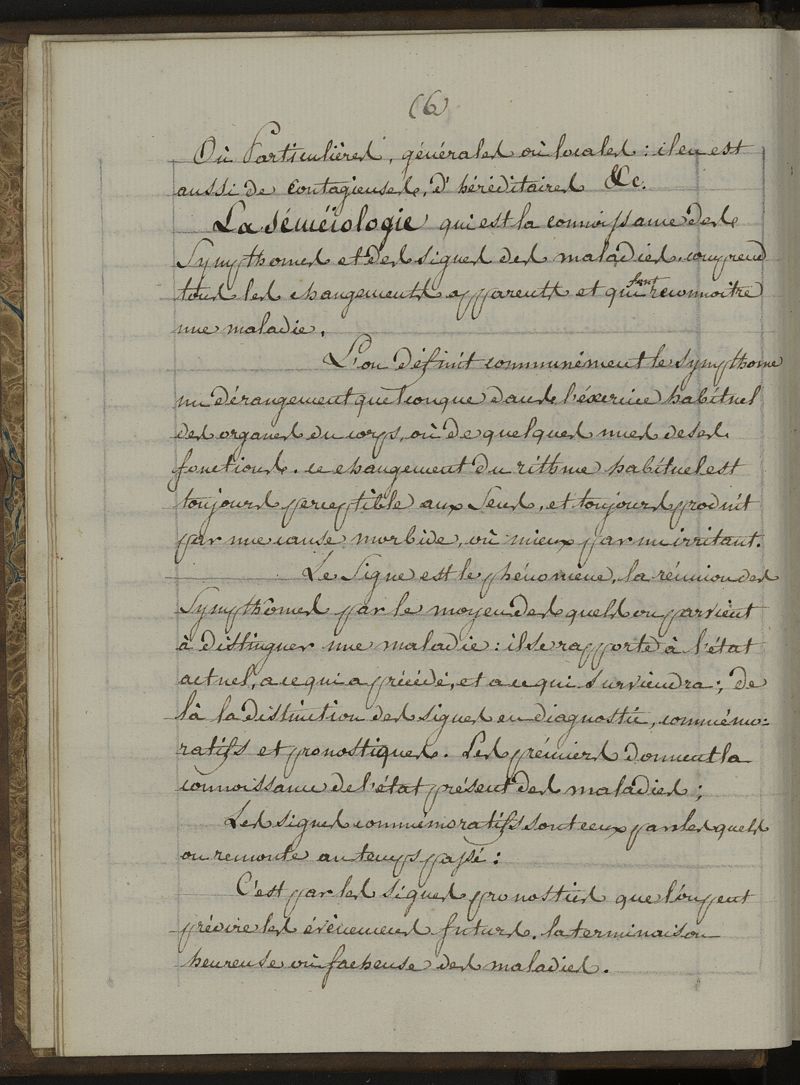 (6)
Où Particulières, générales où locales : il en est
aussi de contagieuses, d'héréditaires &c.
La séméiologie qui est la connoissance des
Symphomes et des signes des maladies, comprend
tous les changements apparents et qui font reconnoitre
une maladie.
L'on définit communément le symphome
un dérangement quelconque dans l'éxercice habituel
des organes du corps, où de quelques unes de ses
fonctions. ce changement du rithme habituel est
toujours perceptible aux Sens, et toujours produit
par une cause morbide, où mieux par un irritant.
Le Signe est le phénomene, la réunion des
Symphomes par le moyen des quels on parvient
à distinguer une maladie : il se rapporte à l'état
actuel, a ce qui a précédé, et a ce qui surviendra ; de
là la distinction des signes en diagnostic, commémo=
ratifs et pronostiques. Les prémiers donnent la
connoissance de l'état présent des maladies ;
Les signes commémoratifs sont ceux par les quels
on remonte au temps passé :
C'est par les signes pronostics que l'on peut
prévoire les événemens futurs, la terminaison
heureuse où facheuse des maladies.